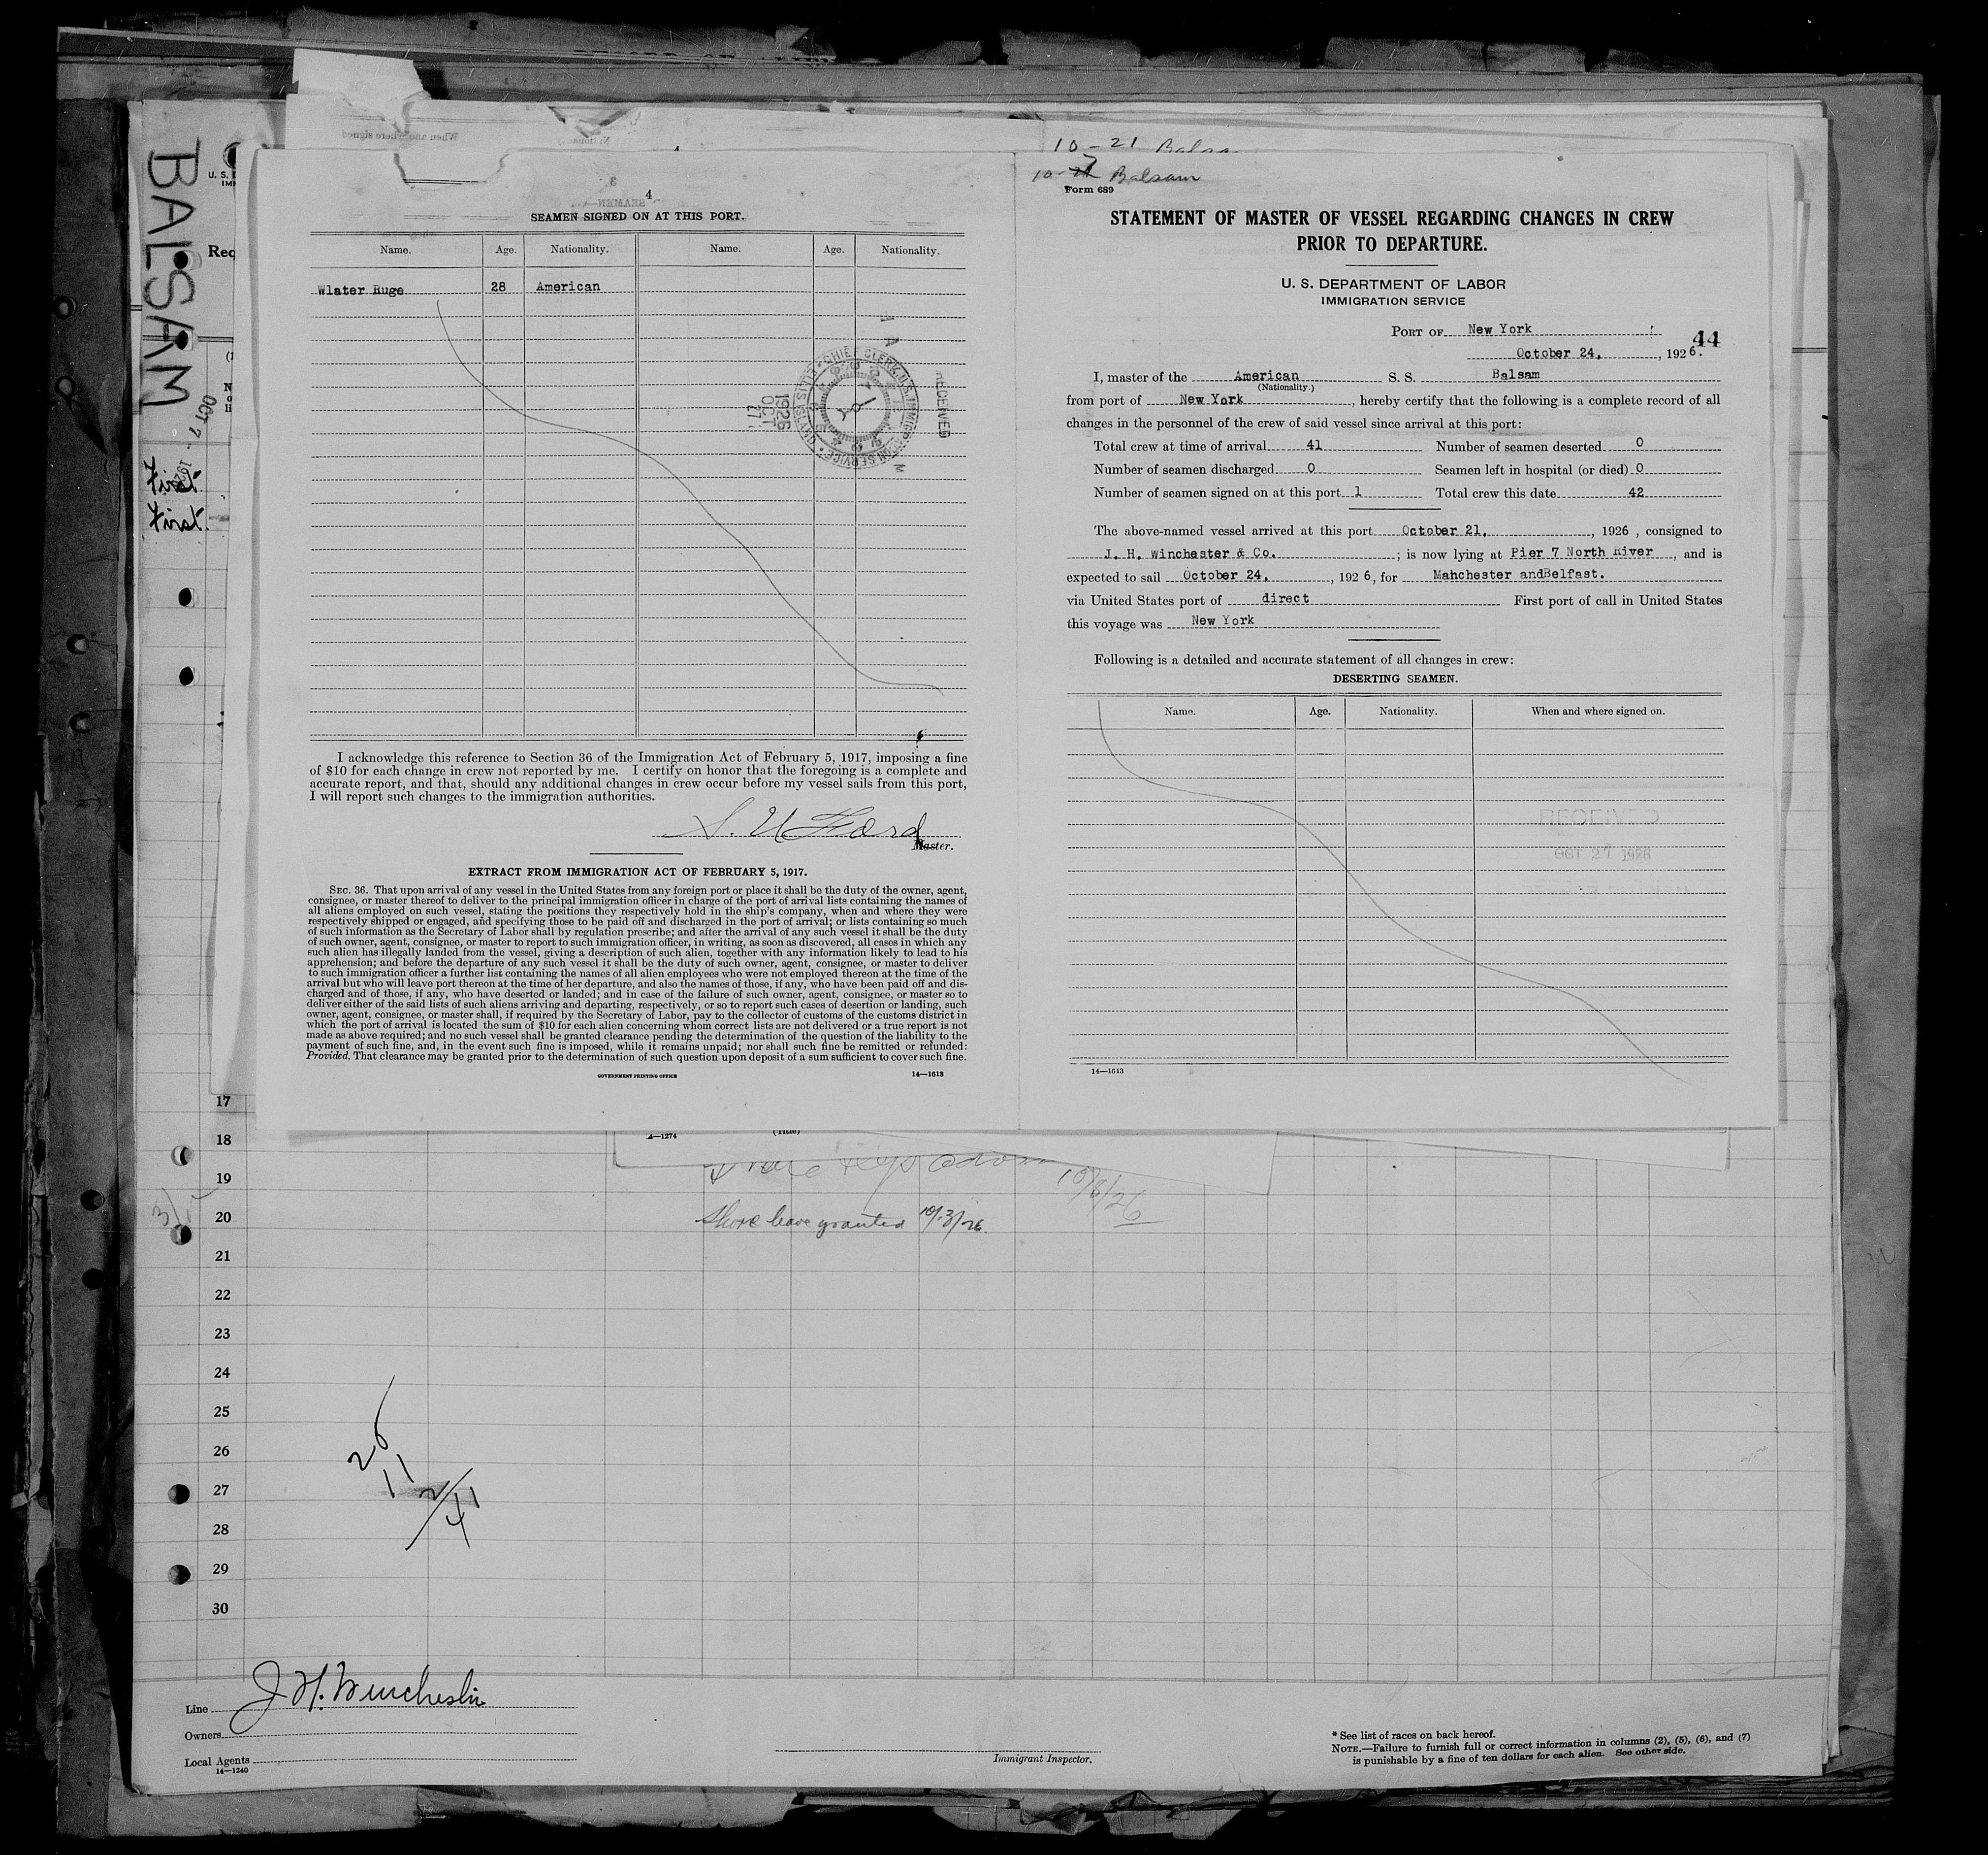 BALSAM
OCT 7 -
First.
First.
U. S.
Req
When and where signed
10-21
10-7 Balsam
4
SEAMEN
SEAMEN SIGNED ON AT THIS PORT.
Name. Age. Nationality. Name. Age. Nationality.
Wlater Ruge 28 American
RECEIVED
CHIEF CLERK, U.S. IMMIGRATION SERVICE
1926
OCT
27
I acknowledge this reference to Section 36 of the Immigration Act of February 5, 1917, imposing a fine
of $10 for each change in crew not reported by me. I certify on honor that the foregoing is a complete and
accurate report, and that, should any additional changes in crew occur before my vessel sails from this port,
I will report such changes to the immigration authorities.
Master.
EXTRACT FROM IMMIGRATION ACT OF FEBRUARY 5, 1917.
SEC. 36. That upon arrival of any vessel in the United States from any foreign port or place it shall be the duty of the owner, agent,
consignee, or master thereof to deliver to the principal immigration officer in charge of the port of arrival lists containing the names of
all aliens employed on such vessel, stating the positions they respectively hold in the ship's company, when and where they were
respectively shipped or engaged, and specifying those to be paid off and discharged in the port of arrival; or lists containing so much
of such information as the Secretary of Labor shall by regulation prescribe; and after the arrival of any such vessel it shall be the duty
of such owner, agent, consignee, or master to report to such immigration officer, in writing, as soon as discovered, all cases in which any
such alien has illegally landed from the vessel, giving a description of such alien, together with any information likely to lead to his
apprehension; and before the departure of any such vessel it shall be the duty of such owner, agent, consignee, or master to deliver
to such immigration officer a further list containing the names of all alien employees who were not employed thereon at the time of the
arrival but who will leave port thereon at the time of her departure, and also the names of those, if any, who have been paid off and dis-
charged and of those, if any, who have deserted or landed; and in case of the failure of such owner, agent, consignee, or master so to
deliver either of the said lists of such aliens arriving and departing, respectively, or so to report such cases of desertion or landing, such
owner, agent, consignee, or master shall, if required by the Secretary of Labor, pay to the collector of customs of the customs district in
which the port of arrival is located the sum of $10 for each alien concerning whom correct lists are not delivered or a true report is not
made as above required; and no such vessel shall be granted clearance pending the determination of the question of the liability to the
payment of such fine, and, in the event such fine is imposed, while it remains unpaid; nor shall such fine be remitted or refunded:
Provided, That clearance may be granted prior to the determination of such question upon deposit of a sum sufficient to cover such fine.
GOVERNMENT PRINTING OFFICE 14—1613
Form 689
STATEMENT OF MASTER OF VESSEL REGARDING CHANGES IN CREW
PRIOR TO DEPARTURE.
U. S. DEPARTMENT OF LABOR
IMMIGRATION SERVICE
PORT OF New York
44
October 24, , 1926.
I, master of the American S. S. Balsam
(Nationality.)
from port of New York , hereby certify that the following is a complete record of all
changes in the personnel of the crew of said vessel since arrival at this port:
Total crew at time of arrival 41 Number of seamen deserted 0
Number of seamen discharged 0 Seamen left in hospital (or died) 0
Number of seamen signed on at this port 1 Total crew this date 42
The above-named vessel arrived at this port October 21, , 1926 , consigned to
J. H. Winchester & Co. ; is now lying at Pier 7 North River , and is
expected to sail October 24, , 192 6, for Mahchester andBelfast.
via United States port of direct First port of call in United States
this voyage was New York
Following is a detailed and accurate statement of all changes in crew:
DESERTING SEAMEN.
Name. Age. Nationality. When and where signed on.
RECEIVED
OCT 27 1926
14—1613
17
18
19
20
21
22
23
24
25
26
27
28
29
30
4—1274 (Title)
10/8/26
Shore leave granted 10/3/26
26
11
41
Line J H. Winchester
Owners
Local Agents
14—1240
Immigrant Inspector.
* See list of races on back hereof.
NOTE.—Failure to furnish full or correct information in columns (2), (5), (6), and (7)
is punishable by a fine of ten dollars for each alien. See other side.